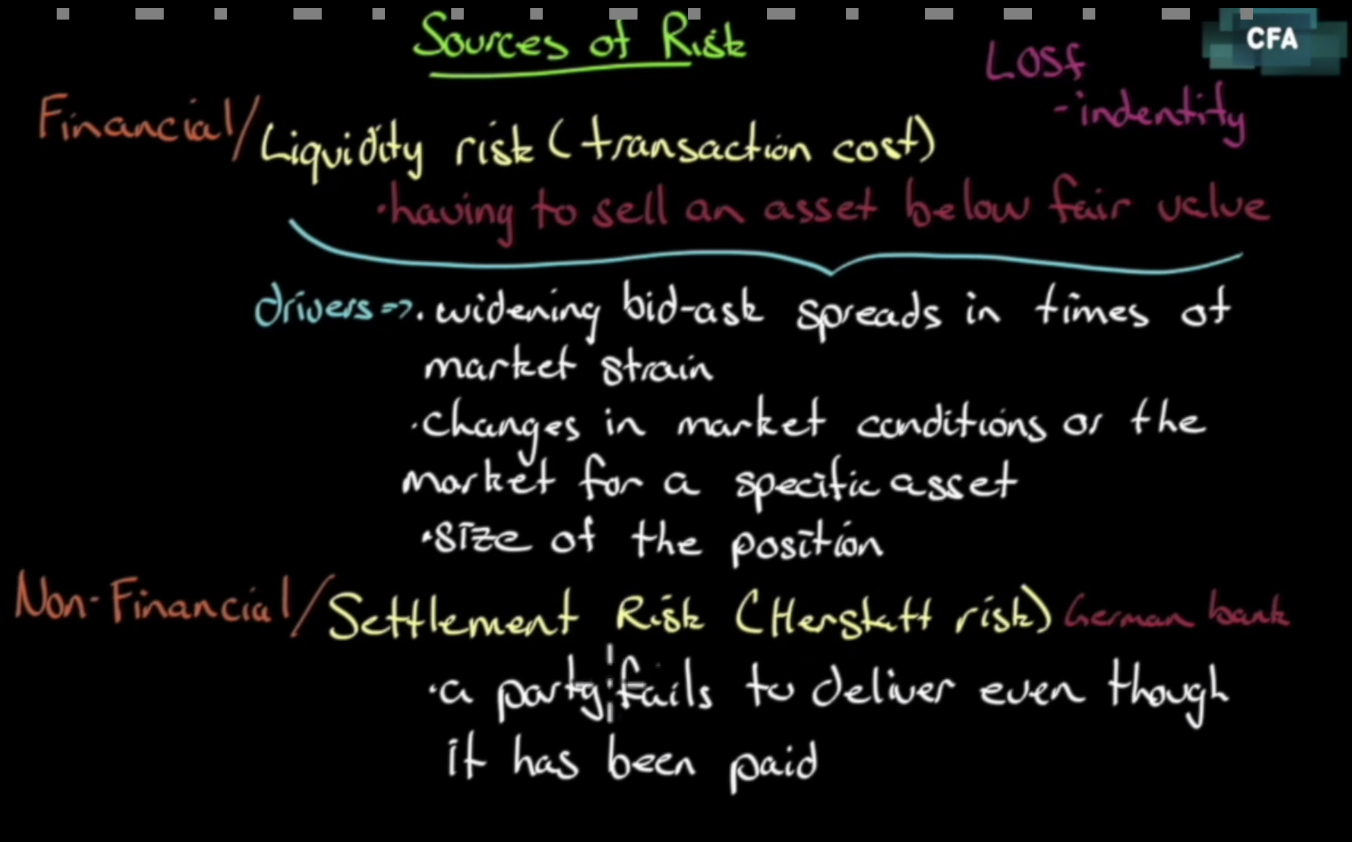 Sources of Risk
CFA
LOSf
-indentity
Financial/Liquidity risk (transaction cost)
·having to sell an asset below fair value
drivers => ·widening bid-ask spreads in times of
market strain
·changes in market conditions or the
market for a specific asset
·size of the position
Non-Financial/Settlement Risk (Herstatt risk) German bank
·a party fails to deliver even though
it has been paid